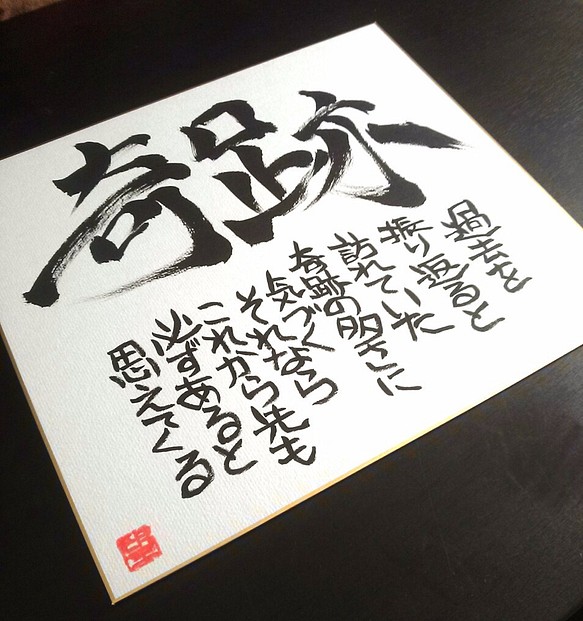 奇跡
過去を
振り返ると
訪れていた
奇跡の多さに
気づく
それなら
これから先も
必ずあると
思えてくる